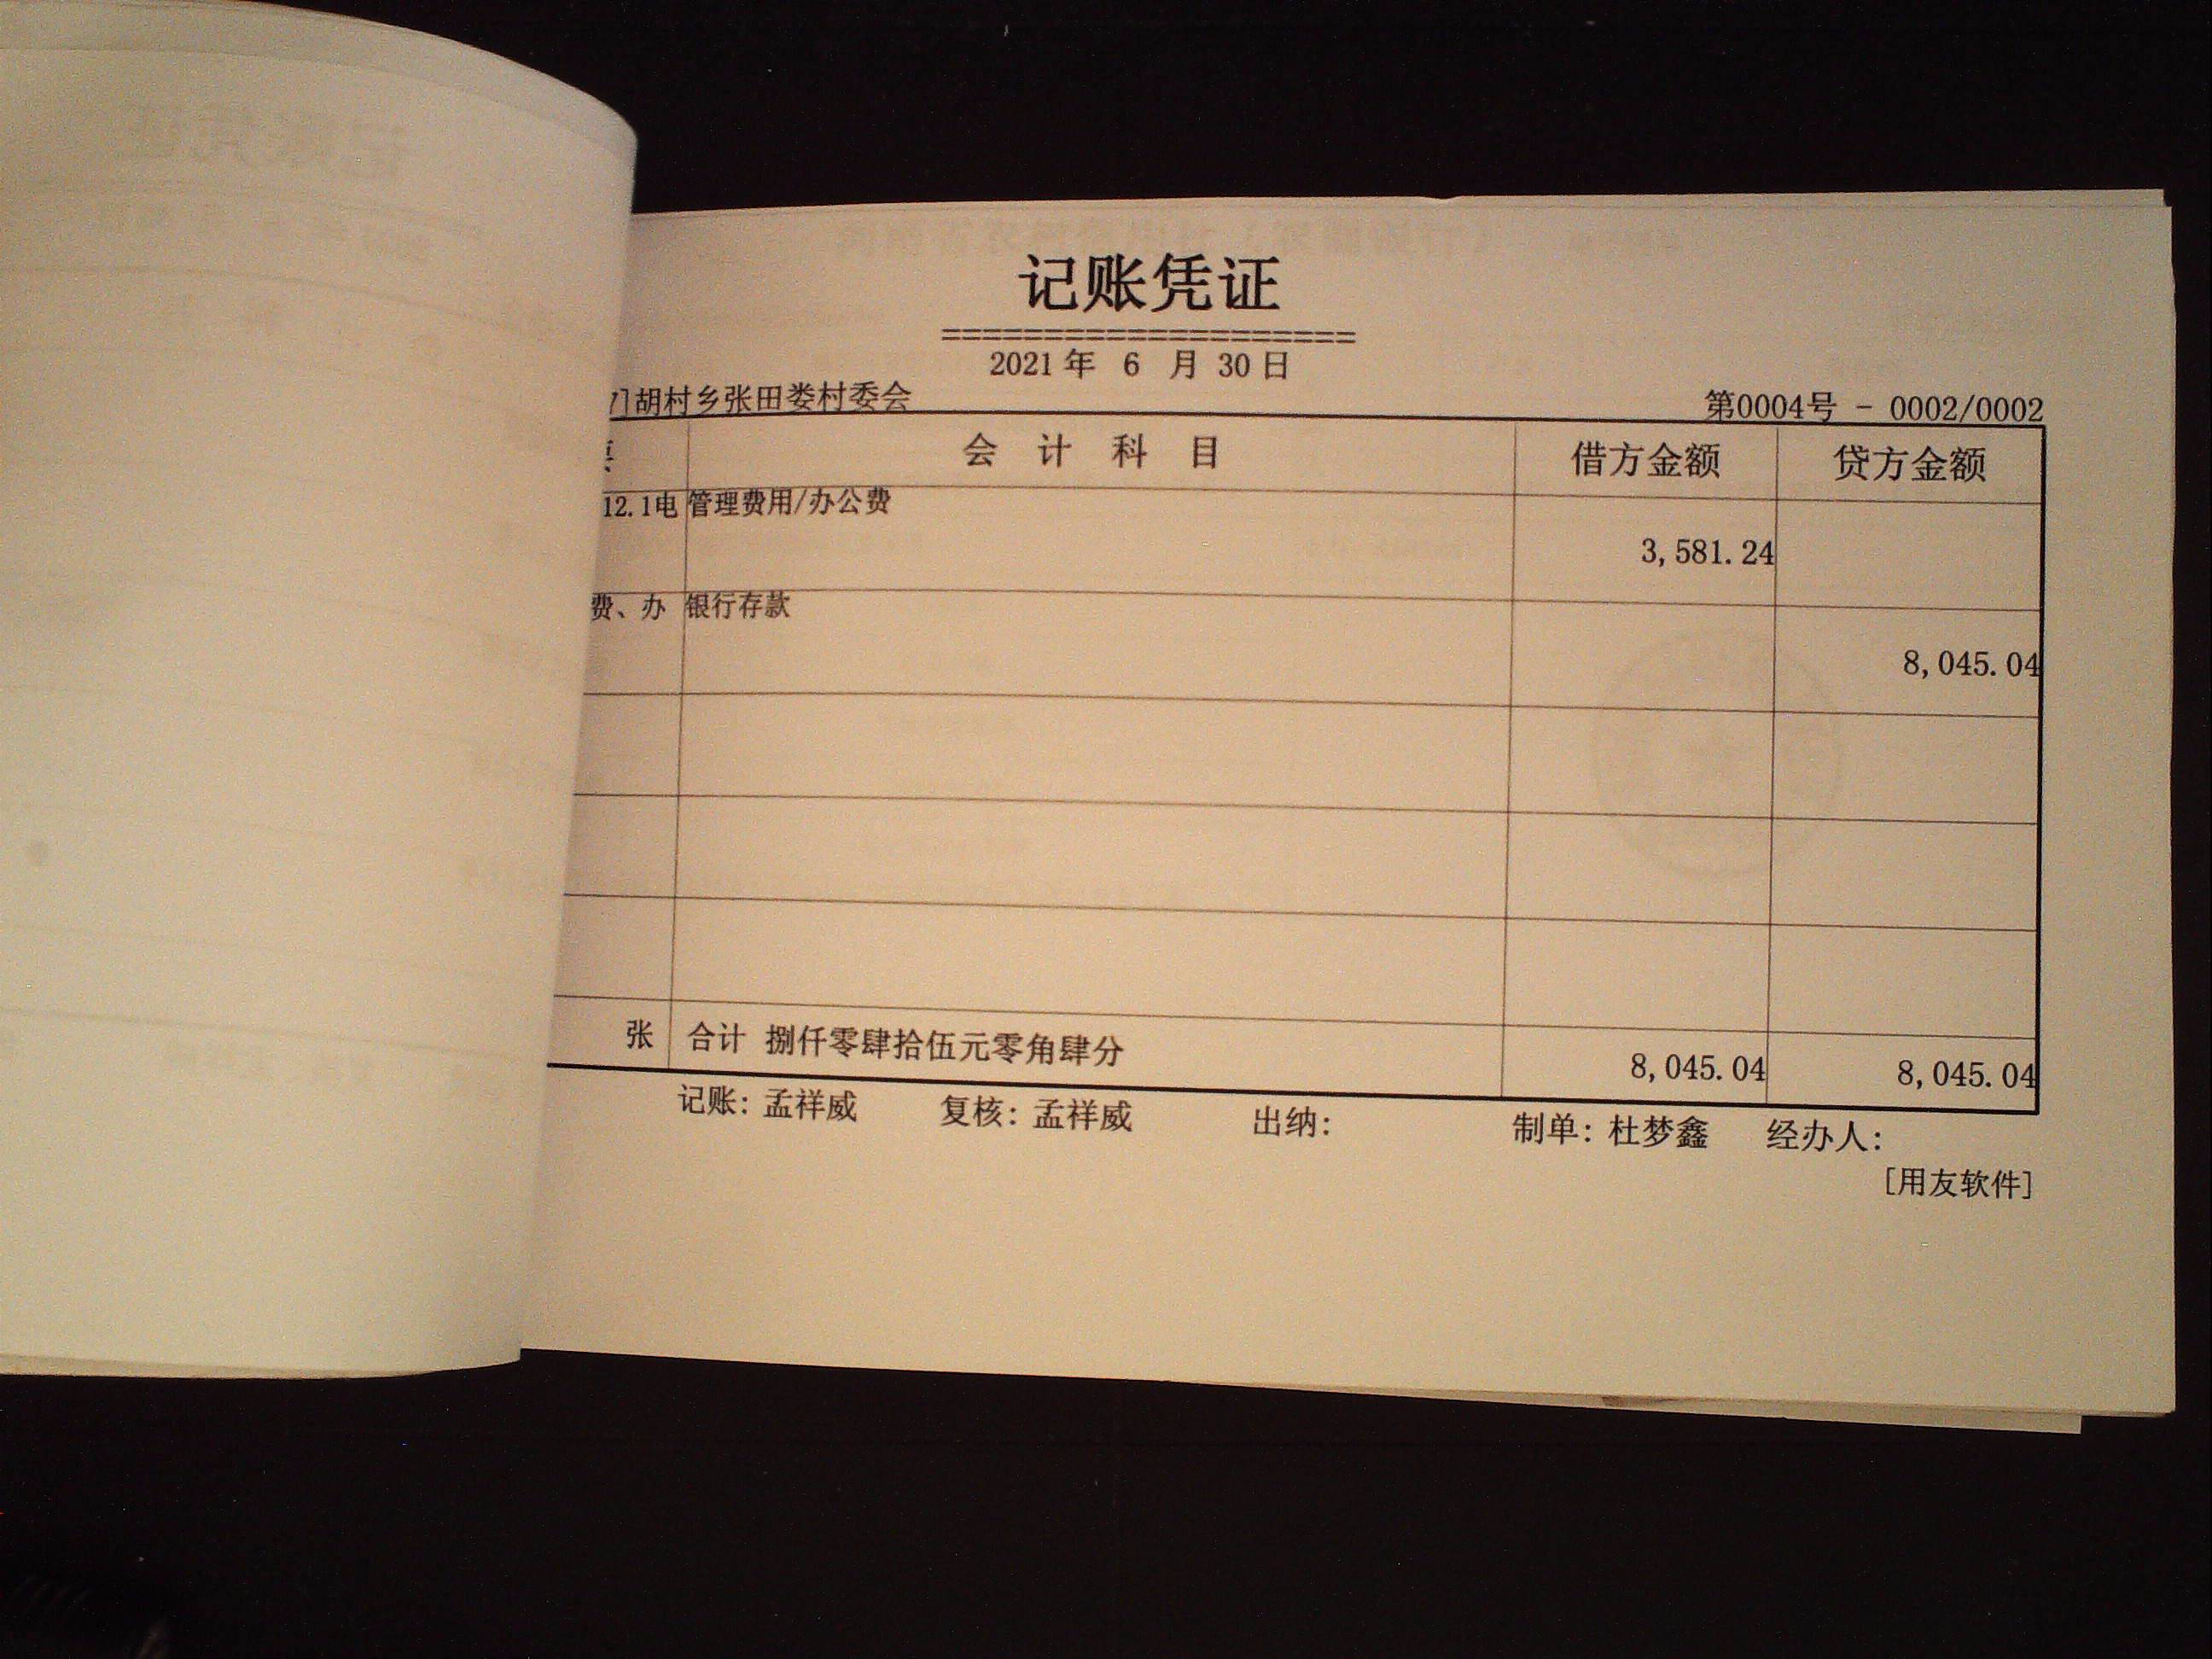 记账凭证
2021 年 6 月 30 日
7]胡村乡张田娄村委会 第0004号 - 0002/0002
会 计 科 目 借方金额 贷方金额
12.1电 管理费用/办公费
3,581.24
费、办 银行存款
8,045.04
张 合计 捌仟零肆拾伍元零角肆分 8,045.04 8,045.04
记账: 孟祥威 复核: 孟祥威 出纳: 制单: 杜梦鑫 经办人:
[用友软件]